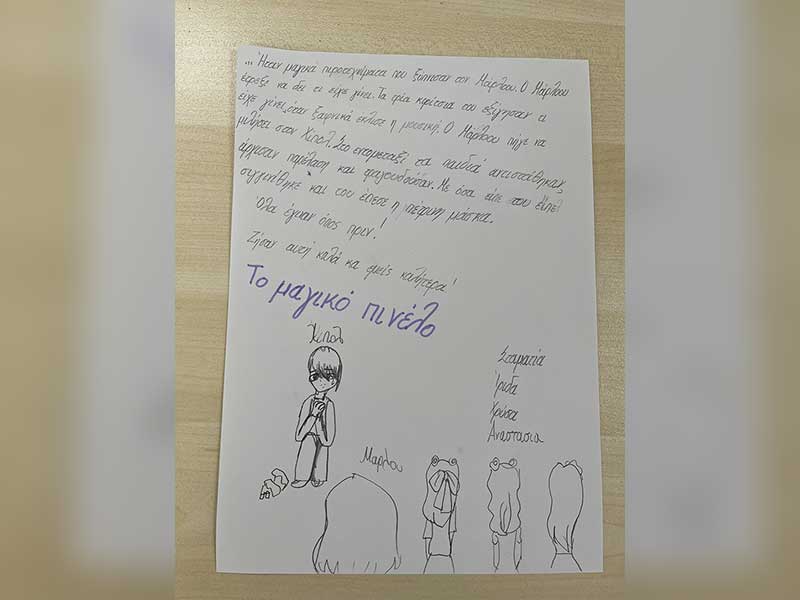 ... Ήταν μαγικά πυροτεχνήματα που ξύπνησαν τον Μάρλου. Ο Μάρλου
έτρεξε να δει τι είχε γίνει. Τα τρία κορίτσια του εξήγησαν τι
είχε γίνει, όταν ξαφνικά έκλεισε η μουσική. Ο Μάρλου πήγε να
μιλήσει στον Χιπολ. Στο εταμεταξί τα παιδιά αντιστάθηκαν,
άρχισαν παρέλαση και τραγουδούσαν. Με όσα είπε του
συγκινήθηκε και του έπεσε η μάσκα.
Όλα έγιναν όπος πριν!
Ζήσαν αυτή καλά κα εμείς καλήτερα!
Το μαγικό πινέλο
Χιπολ
Σταματία
Ίριδα
Χρύσα
Αναστασια
Μαρλου